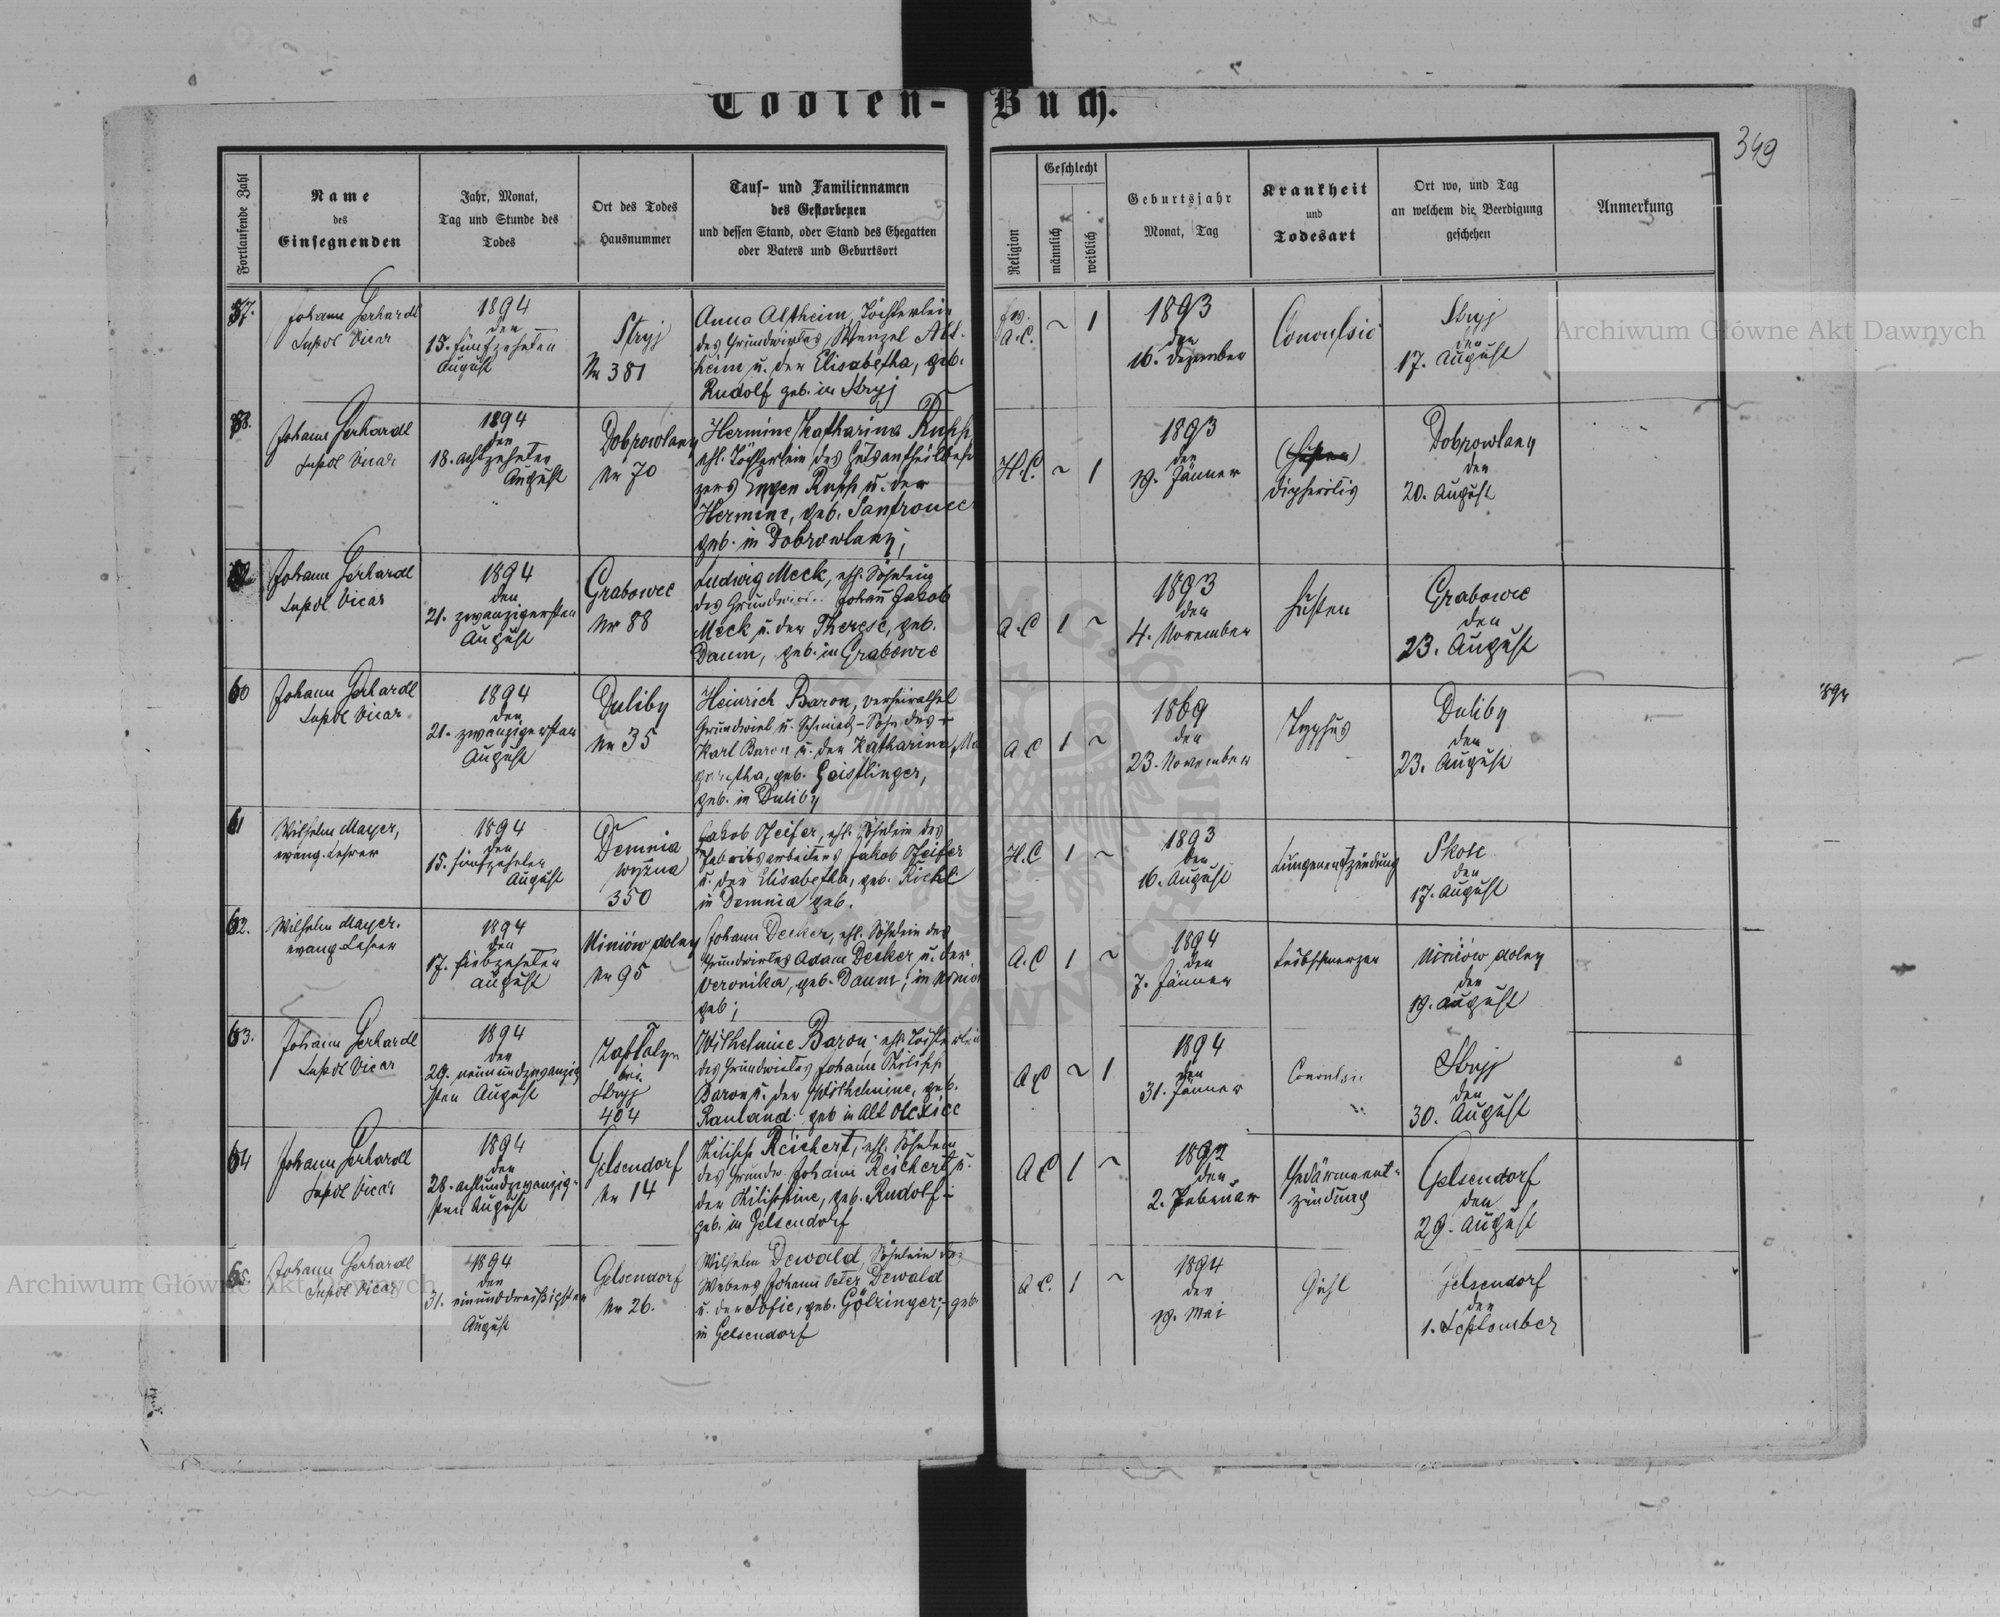 Todten-Buch.
349
Fortlaufende Zahl
Name
des
Einsegnenden
Jahr, Monat,
Tag und Stunde des
Todes
Ort des Todes
Hausnummer
Tauf- und Familiennamen
des Gestorbenen
und dessen Stand, oder Stand des Ehegatten
oder Vaters und Geburtsort
Religion
Geschlecht
männlich
weiblich
Geburtsjahr
Monat, Tag
Krankheit
und
Todesart
Ort wo, und Tag
an welchem die Beerdigung
geschehen
Anmerkung
57.
Johann Gerhardt
Vicar
1894
den
15. fünfzehnten
August
Stryj
Nr 381
Anna Altheim, Töchterlein
des Grundwirtes Wenzel Alt-
heim u. der Elisabetha, geb.
Rudolf geb. in Stryj
ev.
A.C.
~ 1
1893
den
16. Dezember
Convulsie
Stryj
den
17. August
58.
Johann Gerhardt
Vicar
1894
den
18. achtzehnten
August
Dobrowlany
Nr 70
Hermine Katharina Rupp
ehl. Töchterlein des Gutsantheilbesi
zers Eugen Rupp u. der
Hermine, geb.
geb. in Dobrowlany;
H.C.
~ 1
1893
den
19. Jänner
(Husten)
Dipheritis
Dobrowlany
den
20. August
Johann Gerhardt
Vicar
1894
den
21. zwanzigersten
August
Grabowce
Nr 88
Ludwig Meck, ehl. Söhnlein
des Grundwirt. Johann Jakob
Meck u. der Therese, geb.
Daum, geb. in Grabowce
A.C
1 ~
1893
den
4. November
Husten
Grabowce
den
23. August
60
Johann Gerhardt
Vicar
1894
den
21. zwanzigersten
August
Duliby
Nr 35
Heinrich Baron, verheirathet
Grundwirt u. Schmied-Sohn des
Karl Baron u. der Katharina, Ma
garetha, geb. Geistlinger,
geb. in Duliby
A C
1 ~
1869
den
23. November
Typhus
Duliby
den
23. August
61
Wilhelm Mayer,
evang. Lehrer
1894
den
15. fünfzehnten
August
Demnia
wyzna
350
Jakob Pfeifer, ehl. Söhnlein des
Fabriksarbeiters Jakob Pfeifer
u. der Elisabetha, geb.
in Demnia geb.
H.C
1 ~
1893
den
16. August
Lungenentzündung
Skole
den
17. August
62.
Wilhelm Mayer.
evang. Lehrer
1894
den
17. siebzehnten
August
dolny
Nr 95
Johann Decker, ehl. Söhnlein des
Grundwirtes Adam Decker u. der
Veronika, geb. Daum; in
geb;
A.C
1 ~
1894
den
7. Jänner
Leibschmerzen
dolny
den
19. August
63.
Johann Gerhardt
Vicar
1894
den
29. neunundzwanzig
sten August
bei
Stryj
404
Wilhelmine Baron ehl. Töchterlein
des Grundwirtes Johann Philipp
Baron u. der Wilhelmine, geb.
Rauland geb in Alt Olexice
A C
~ 1
1894
den
31. Jänner
Convulsie
Stryj
den
30. August
64
Johann Gerhardt
Vicar
1894
den
28. achtundzwanzig-
sten August
Gelsendorf
Nr 14
Philipp Reichert, ehl. Söhnlein
des Grundw. Johann Reichert u.
der Philippine, geb. Rudolf -
geb. in Gelsendorf
A C
1 ~
1892
den
2. Februar
Gedärmeent-
zündung
Gelsendorf
den
29. August
65.
Johann Gerhardt
Vicar
1894
den
31. einunddreißigsten
August
Gelsendorf
Nr 26.
Wilhelm Dewald, Söhnlein des
Webers Johann Peter Dewald
u. der Sofie, geb. Gölzinger; - geb.
in Gelsendorf
A C.
1 ~
1894
den
19. Mai
Gelsendorf
den
1. September
Archiwum Główne Akt Dawnych
Archiwum Główne Akt Dawnych